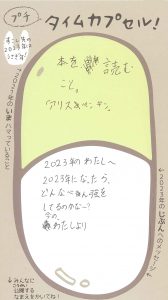 プチ
タイムカプセル!
すこし先の
2023年に
つぎ
本を読む
こと。
「アリス&ペンギン」
2023年のいま
ハマっていること
2023年のわたしへ
2023年になったら、
どんなべん強を
してるのかなー?
今の
わたしより
2023年のじぶんへのメッセージ
みんなに
公開する
なまえをかいてね!